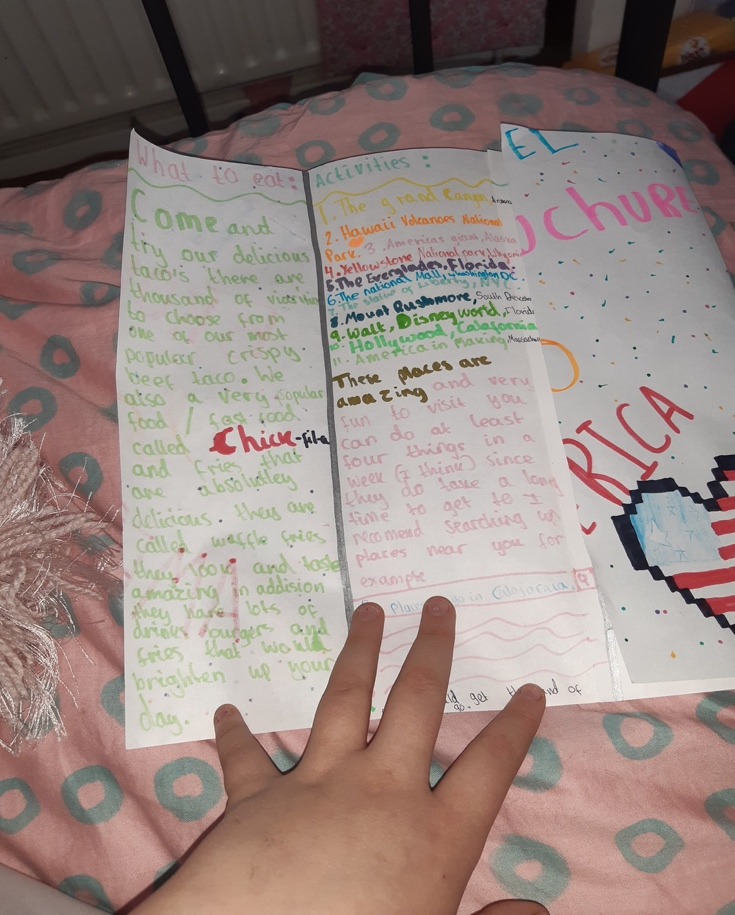 What to eat:
Come and
try our delicious
taco's there are
thousand of
to choose from
one of our most
popular crispy
beef taco. We
also a very popular
food / fas food
called Chick-fila
and fries that
are absolutley
delicious. they are
called waffle fries
they look and taste
amazing in addision
they have lots of
drinks burgers and
fries that would
brighten up your
day.
Activities:
1. The grand Canyon,
2. Hawaii Volcanoes National
Park. 3. Americas giant, Alaska
4. Yellowstone National park,
5. The Everglades, Florida.
6. The national Mall, Washington DC
7. The statue of Liberty, NYC
8. Mount Rushmore, South
9. Walt, Disney world, Florida
10. Hollywood, Calafornia
11. America in Making,
These places are
amazing and very
fun to visit you
can do at least
four things in a
week (I think) since
they do take a long
time to get to I
recomend searching up
places near you for
example
Places to do in Calafornia.
get
of
EL
OCHURE
RICA